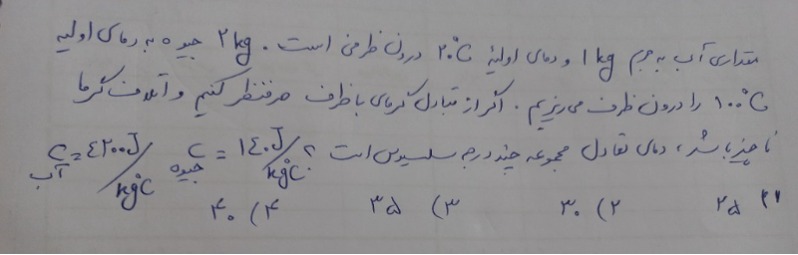 مقداری آب به جرم 1 kg و دمای اولیهٔ ۲۰°C درون ظرفی است. ۲ kg جیوه به دمای اولیه
۱۰۰°C را درون ظرف می‌ریزیم. اگر از تبادل گرمای با ظرف صرفنظر کنیم و اتلاف گرما
ناچیز باشد، دمای تعادل مجموعه چند درجه سلسیوس است؟ C جیوه = ۱٤۰ J/kg°C C آب = ٤۲۰۰ J/kg°C
۱) ۲۵ ۲) ۳۰ ۳) ۳۵ ۴) ۴۰